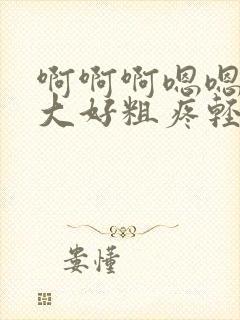 啊啊啊嗯嗯
大好粗疼轻
娄懂